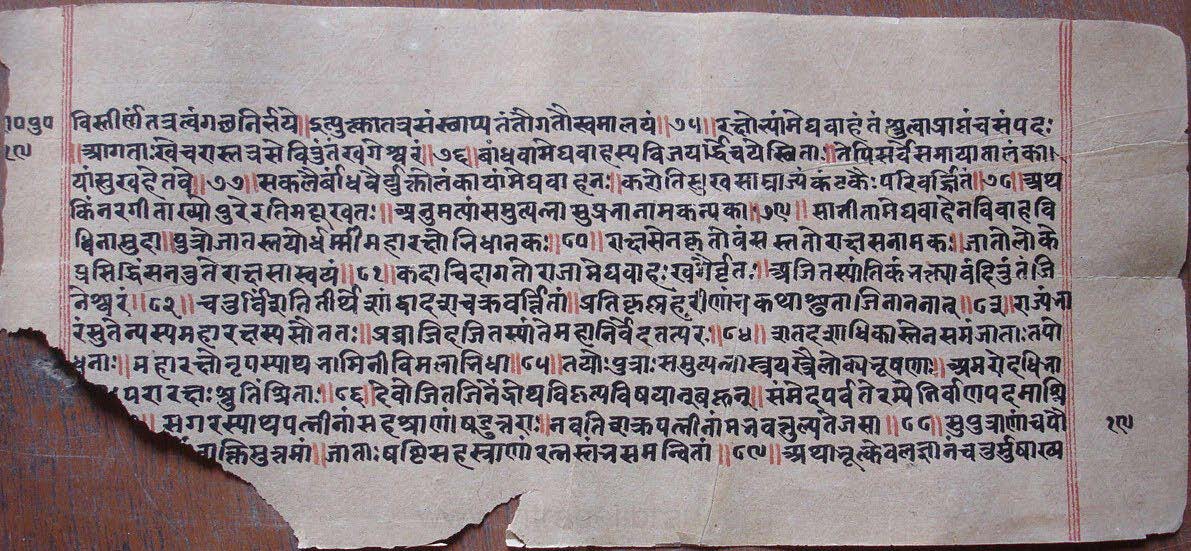 विस्तीर्णं तत्र त्वं गच्छ निर्भये॥इत्युक्त्वा तत्र संस्थाप्य तं तौ गतौ स्वमालयं॥७५॥रक्षोभ्यां मेघवाहं तं श्रुत्वा प्राप्तं च संपदः
१९॥आगताः खेचरास्तत्र सेवितुं तं खगेश्वरं॥७६॥बांधवा मेघवाहस्य विजयार्द्धे च ये स्थिताः॥तेपि सर्वे समायाता लंका
यां सुखहेतवे॥७७॥सकलैर्बांधवैर्युक्तो लंकायां मेघवाहनः॥करोति साम्राज्यं कंटकैः परिवर्जितं॥७८॥अथ
किंनरगीताख्ये पुरे रतिमयूखतः॥अनुमत्यां समुत्पन्ना सुप्रभा नाम कन्यका॥७९॥सानीता मेघवाहेन विवाहवि
धिना मुदा॥पुत्रो जातस्तयोर्धर्म्मी महारक्षो निधानकः॥८०॥राक्षसेन कृतो वंसस्ततो राक्षसनामकः॥जातो लोके
प्रसिद्धिं स राक्षसा स्वयं॥८१॥कदाचिदागतो राजा मेघवाहः खगैर्वृतः॥अजितस्यांतिकं भक्त्या वंदितुं तं जि
नेश्वरं॥८२॥चतुर्विंशतितीर्थेशां द्वादशचक्रवर्त्तिनां॥प्रति कथा श्रुता जिनाननात्॥८३॥राज्यं
महारक्षस्य सौ ततः॥प्रवव्राजिदजितस्यांते महानिर्वेदतत्परः॥८४॥शतदशाधिकास्तेन समं जाताः तपो
धनाः॥महारक्षो नृपस्याथ भामिनी विमलाभिधा॥८५॥तयोः पुत्राः समुत्पन्नास्त्रयस्त्रैलोक्यभूषणाः॥अमरोदधिभा
परारक्षाः श्रुतिं श्रिताः॥८६॥देवोजितजिनेंद्रोथ विहृत्य विषयान्बहून्॥संमेदपर्वते रम्ये निर्वाणपदमाश्रि
सगरस्याथ पत्नीनां सहस्राणां षडुत्तराः॥नवतिः शक्रपत्नीनां तुल्यतेजसां॥८८॥सुपुत्राणां च १९
शक्तिमुत्तमां॥जाताः षष्टिसहस्त्राणां रत्नस्तंभसमन्वितां॥८९॥अथाभूत्केवलज्ञानं चतुर्मुखाख्य